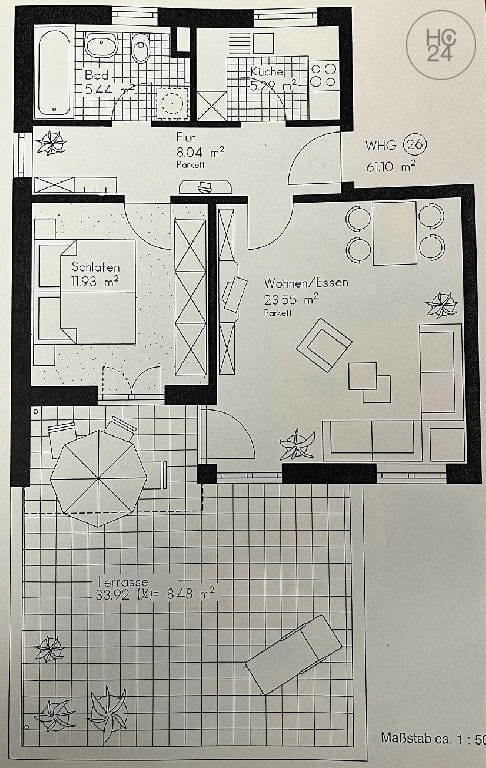 HC
24
Bad
5.44 m²
Küche
5.29 m²
Flur
8.04 m²
Parkett
WHG 26
61.10 m²
Schlafen
11.93 m²
Wohnen/Essen
23.55 m²
Parkett
Terrasse
33.92 = 8.48 m²
Maßstab ca. 1 : 50